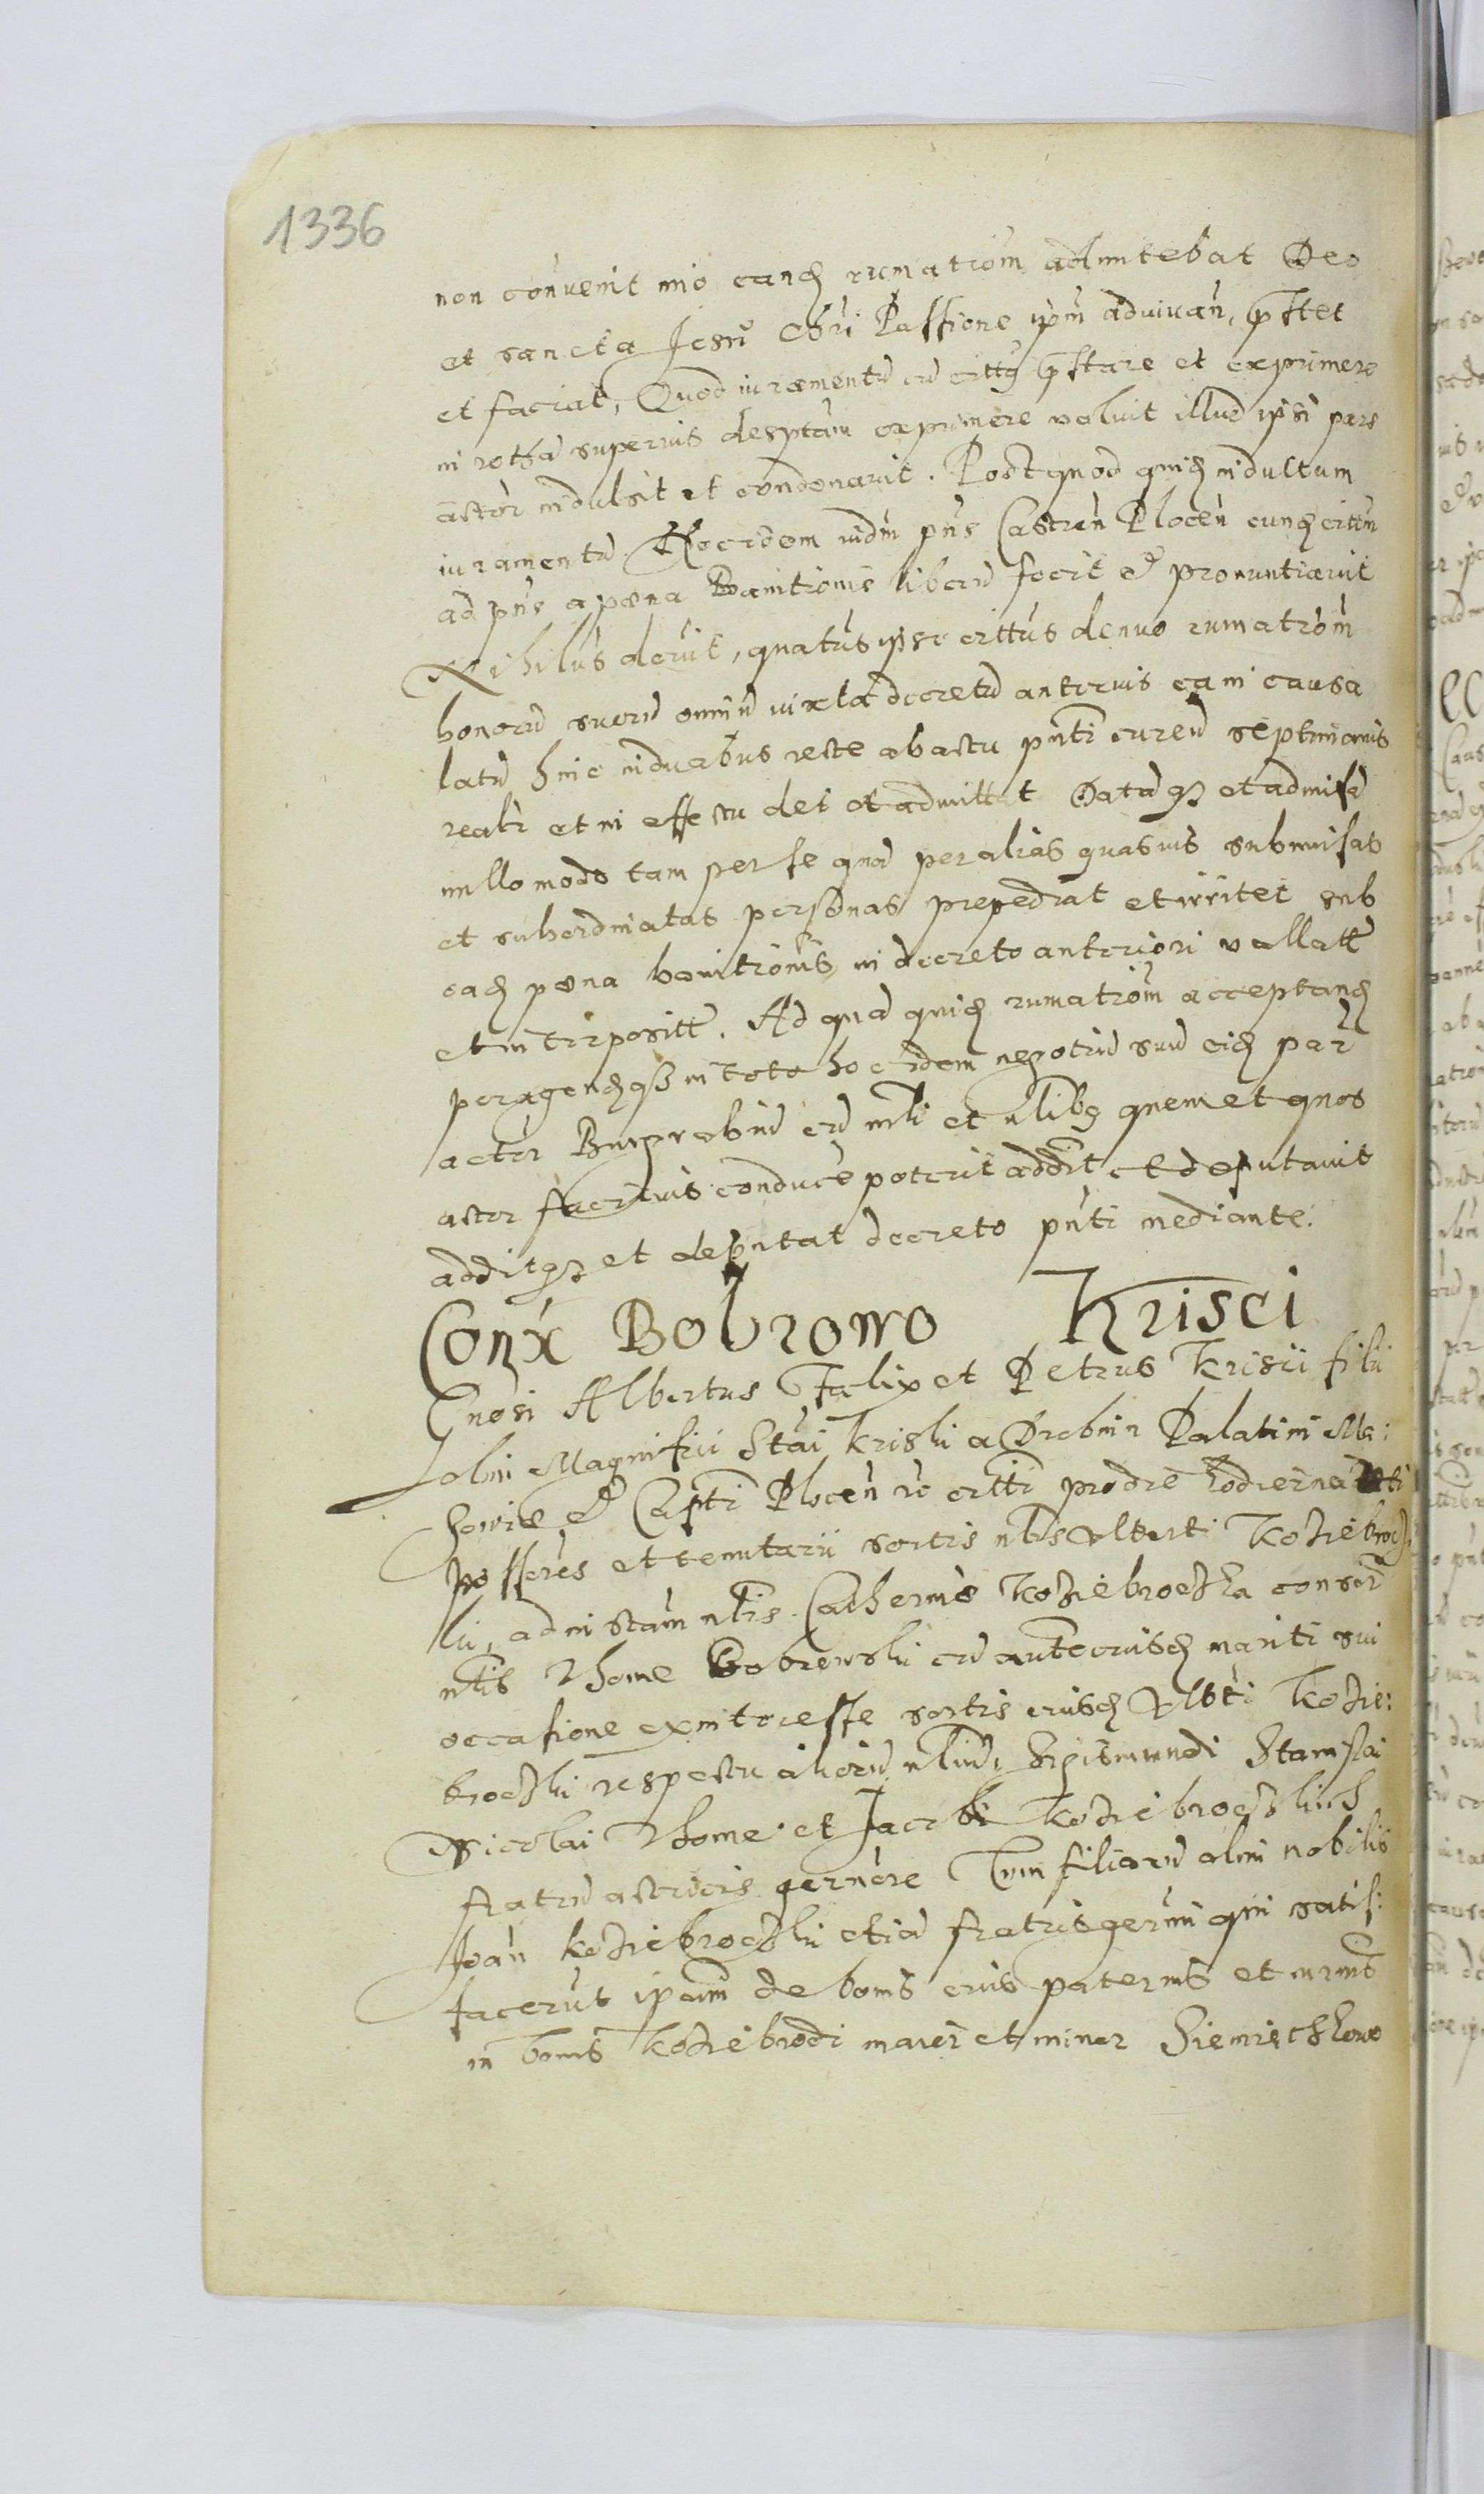 1336
non convenit imo eand rumatiom admittebat Deo
et sancta Jesu Chri Passione ipm adiuvan, pstet
et faciat, Quod iuramentu cu cittg pstare et exprimere
in rotha superius desptam exprimere voluit illud ipsi pars
actor indulsit et condonavit. Post quod quid indultum
iuramentu idem iudm pns Castren Plocen eund cittm
ad pns a pæna Banitionis liberu fecit et pronuntiavit
Nihilus decrevit, quatus ipse cittus denuo rumatiom
bonoru suoru omniu iuxta decretu anterius ea in causa
latu hinc in duabus recte ab actu pnti curen septimanis
realr et in effectu det et admittat Data qz et admissa
nullo modo tam per se qua per alias quasvis submissas
et subordinatas personas prepediat et irritet sub
ead pæna banitionis in decreto anteriori vallatt
et interpositt. Ad qua quid rumatiom acceptand
peragend qz in toto hoc idem negotiu suu eid par
actor Burgrabiu cu mli et nlibg quem et quos
actor facilius conduce poterit addit et deputavit
addit qz et deputat decreto pnti mediante.
Conx Bobrowo Krisci
Gnosi Albertus Fælix et Petrus Kriscii filii
olim Magnifici Stai Kriski a Drobnin Palatini Ma:
sovie et Capti Plocen ut citti pro die hodierna
possores et tenutarii sortis nlis Alberti Kodziebrocz
ki, ad instam nlis Catherinæ Kodziebroczka consor
nlis Thome Bobrowski cu autoritd mariti sui
occasione ex interesse sortis eiusd Albti Kodzie:
broczki respectu alioru nliu, Sigismundi Stanislai
Nicolai Thome et Jacobi Kodziebroczkich
fratru actricis gernore Tum filioru olim nobilis
Joan Kodziebroczki etia fratris germi qui satis:
facerut ipam de bonis eius paternis et mrnis
in bonis Kodziebrodi maior et minor